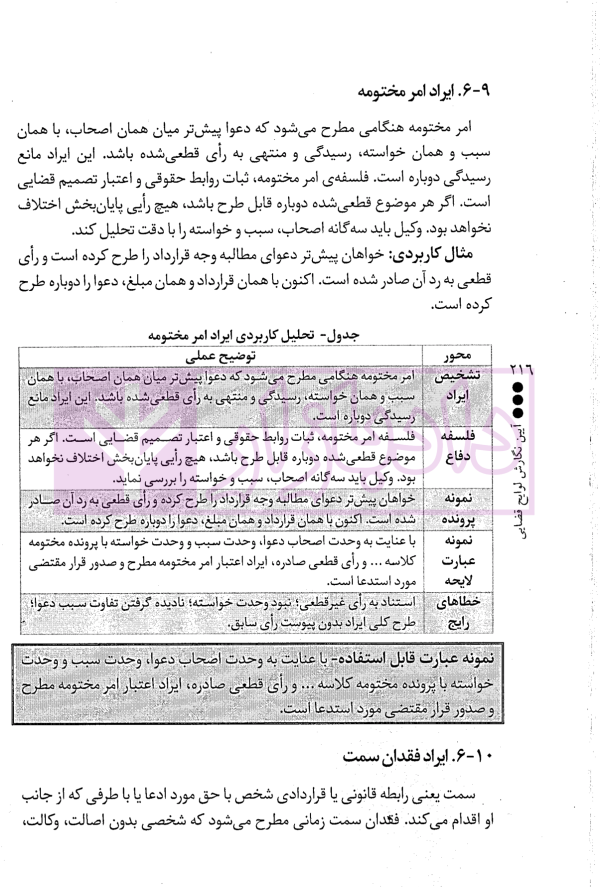 ۶-۹. ایراد امر مختومه
امر مختومه هنگامی مطرح می‌شود که دعوا پیش‌تر میان همان اصحاب، با همان
سبب و همان خواسته، رسیدگی و منتهی به رأی قطعی‌شده باشد. این ایراد مانع
رسیدگی دوباره است. فلسفه‌ی امر مختومه، ثبات روابط حقوقی و اعتبار تصمیم قضایی
است. اگر هر موضوع قطعی‌شده دوباره قابل طرح باشد، هیچ رأیی پایان‌بخش اختلاف
نخواهد بود. وکیل باید سه‌گانه اصحاب، سبب و خواسته را با دقت تحلیل کند.
مثال کاربردی: خواهان پیش‌تر دعوای مطالبه وجه قرارداد را طرح کرده است و رأی
قطعی به رد آن صادر شده است. اکنون با همان قرارداد و همان مبلغ، دعوا را دوباره طرح
کرده است.
جدول- تحلیل کاربردی ایراد امر مختومه
محور توضیح عملی
تشخیص امر مختومه هنگامی مطرح می‌شود که دعوا پیش‌تر میان همان اصحاب، با همان
ایراد سبب و همان خواسته، رسیدگی و منتهی به رأی قطعی‌شده باشد. این ایراد مانع
رسیدگی دوباره است.
فلسفه فلسفه امر مختومه، ثبات روابط حقوقی و اعتبار تصمیم قضایی است. اگر هر
دفاع موضوع قطعی‌شده دوباره قابل طرح باشد، هیچ رأیی پایان‌بخش اختلاف نخواهد
بود. وکیل باید سه‌گانه اصحاب، سبب و خواسته را بررسی نماید.
نمونه خواهان پیش‌تر دعوای مطالبه وجه قرارداد را طرح کرده و رأی قطعی به رد آن صادر
پرونده شده است. اکنون با همان قرارداد و همان مبلغ، دعوا را دوباره طرح کرده است.
نمونه با عنایت به وحدت اصحاب دعوا، وحدت سبب و وحدت خواسته با پرونده مختومه
عبارت کلاسه ... و رأی قطعی صادره، ایراد اعتبار امر مختومه مطرح و صدور قرار مقتضی
لایحه مورد استدعا است.
خطاهای استناد به رأی غیرقطعی؛ نبود وحدت خواسته؛ نادیده گرفتن تفاوت سبب دعوا؛
رایج طرح کلی ایراد بدون پیوست رأی سابق.
نمونه عبارت قابل استفاده- با عنایت به وحدت اصحاب دعوا، وحدت سبب و وحدت
خواسته با پرونده مختومه کلاسه ... و رأی قطعی صادره، ایراد اعتبار امر مختومه مطرح
و صدور قرار مقتضی مورد استدعا است.
۶-۱۰. ایراد فقدان سمت
سمت یعنی رابطه قانونی یا قراردادی شخص با حق مورد ادعا یا با طرفی که از جانب
او اقدام می‌کند. فقدان سمت زمانی مطرح می‌شود که شخصی بدون اصالت، وکالت،
۲۱۶
آیین نگارش لوایح قضایی